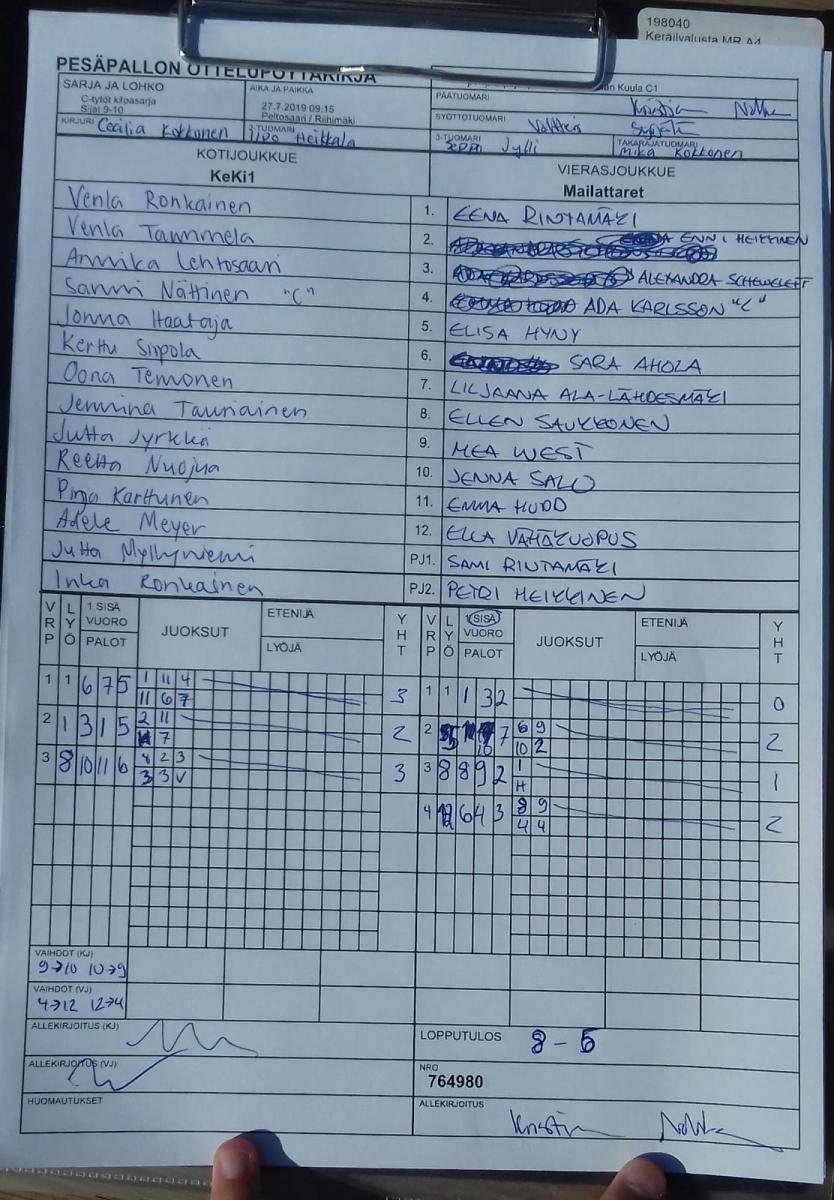 198040
Keräilyalusta MR A4
PESÄPALLON OTTELUPÖYTÄKIRJA
on Kuula C1
SARJA JA LOHKO
C-tytöt kilpasarja
Sijat 9-10
AIKA JA PAIKKA
27.7.2019 09.15
Peltosaari / Riihimäki
PÄÄTUOMARI
SYÖTTÖTUOMARI
KIRJURI Cecilia Kokkonen
2-TUOMARI
Heikkala
3-TUOMARI
Jylli
TAKARAJATUOMARI
Mika Kokkonen
KOTIJOUKKUE
KeKi1
VIERASJOUKKUE
Mailattaret
Venla Ronkainen 1. EENA RINTAMÄKI
Venla Tammela 2. ENNI HEIKKINEN
Annika Lehtosaari 3. ALEXANDRA
Sanni Nättinen "C" 4. ADA KARLSSON "C"
Jonna Haataja 5. ELISA HYNY
Kerttu Sirpola 6. SARA AHOLA
Oona Temonen 7. LILJAANA ALA-LÄHDESMÄKI
Jemmina Tauriainen 8. ELLEN SAUKKONEN
Jutta Jyrkkä 9. MEA WEST
Reetta Nuojua 10. JENNA SALO
Pinja Karttunen 11. EMMA HUDD
Adele Meyer 12. ELLA VÄHÄKUOPUS
Jutta Myllyniemi PJ1. SAMI RINTAMÄKI
Inka Ronkainen PJ2. PETRI HEIKKINEN
VRP LYÖ 1 SISÄ VUORO PALOT JUOKSUT ETENIJÄ LYÖJÄ YHT VRP LYÖ 1 SISÄ VUORO PALOT JUOKSUT ETENIJÄ LYÖJÄ YHT
1 1 6 7 5 1 11 4 3 1 1 1 3 2 0
11 6 7
2 1 3 1 5 2 11 2 2 7 6 9 2
7 10 2
3 8 10 11 6 8 2 3 3 3 8 8 9 2 1 1
3 3 V H
4 12 6 4 3 8 9 2
4 4
VAIHDOT (KJ)
9→10 10→9
VAIHDOT (VJ)
4→12 12→4
ALLEKIRJOITUS (KJ)
LOPPUTULOS 8 - 5
ALLEKIRJOITUS (VJ)
NRO
764980
HUOMAUTUKSET
ALLEKIRJOITUS